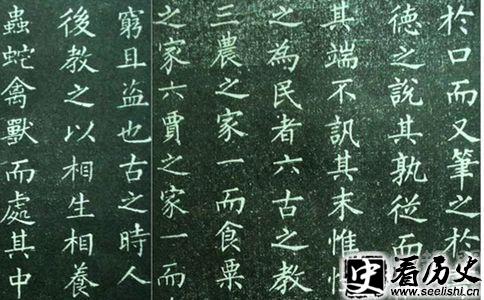 於口而又筆之於
德之說其孰從而
其端不訊其末惟
之為民者六古之教
三農之家一而食粟
之家六賈之家一而
窮且盜也古之時人
後教之以相生相養
蟲蛇禽獸而處其中
史看历史
www.seelishi.cn